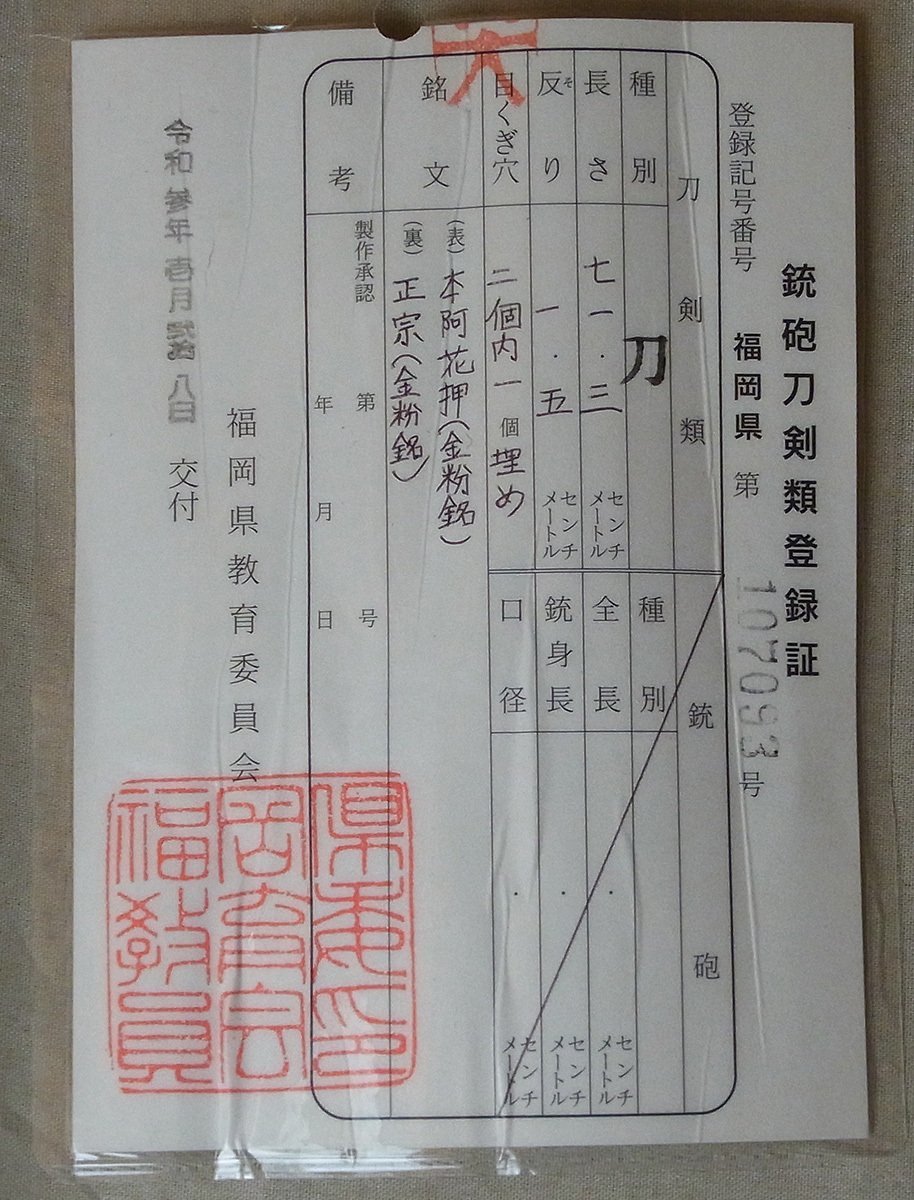 銃砲刀剣類登録証
登録記号番号 福岡県 第107093号
刀剣類
種別 刀
長さ 七一.三 センチメートル
反り そ 一.五 センチメートル
目くぎ穴 二個内一個埋め
銃砲
種別
全長 . センチメートル
銃身長 . センチメートル
口径 . センチメートル
銘文
(表)本阿花押(金粉銘)
(裏)正宗(金粉銘)
備考
製作承認 第 号
年 月 日
福岡県教育委員会
令和参年壱月 八日 交付
県委印
岡育会
福教員